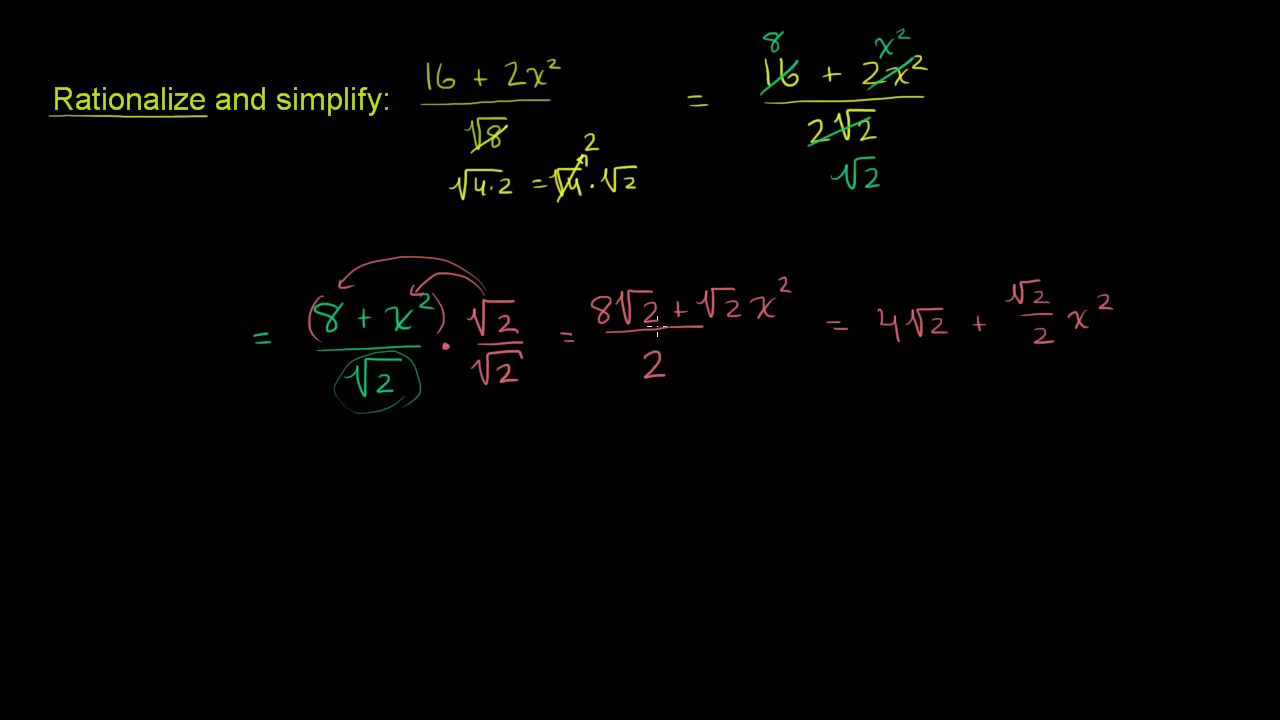 Rationalize and simplify: (16 + 2x²)/√8 = (16 + 2x²)/(2√2)
8 x²
√4·2 = √4 · √2
2
√2
= (8 + x²)/√2 · √2/√2 = (8√2 + √2 x²)/2 = 4√2 + √2/2 x²